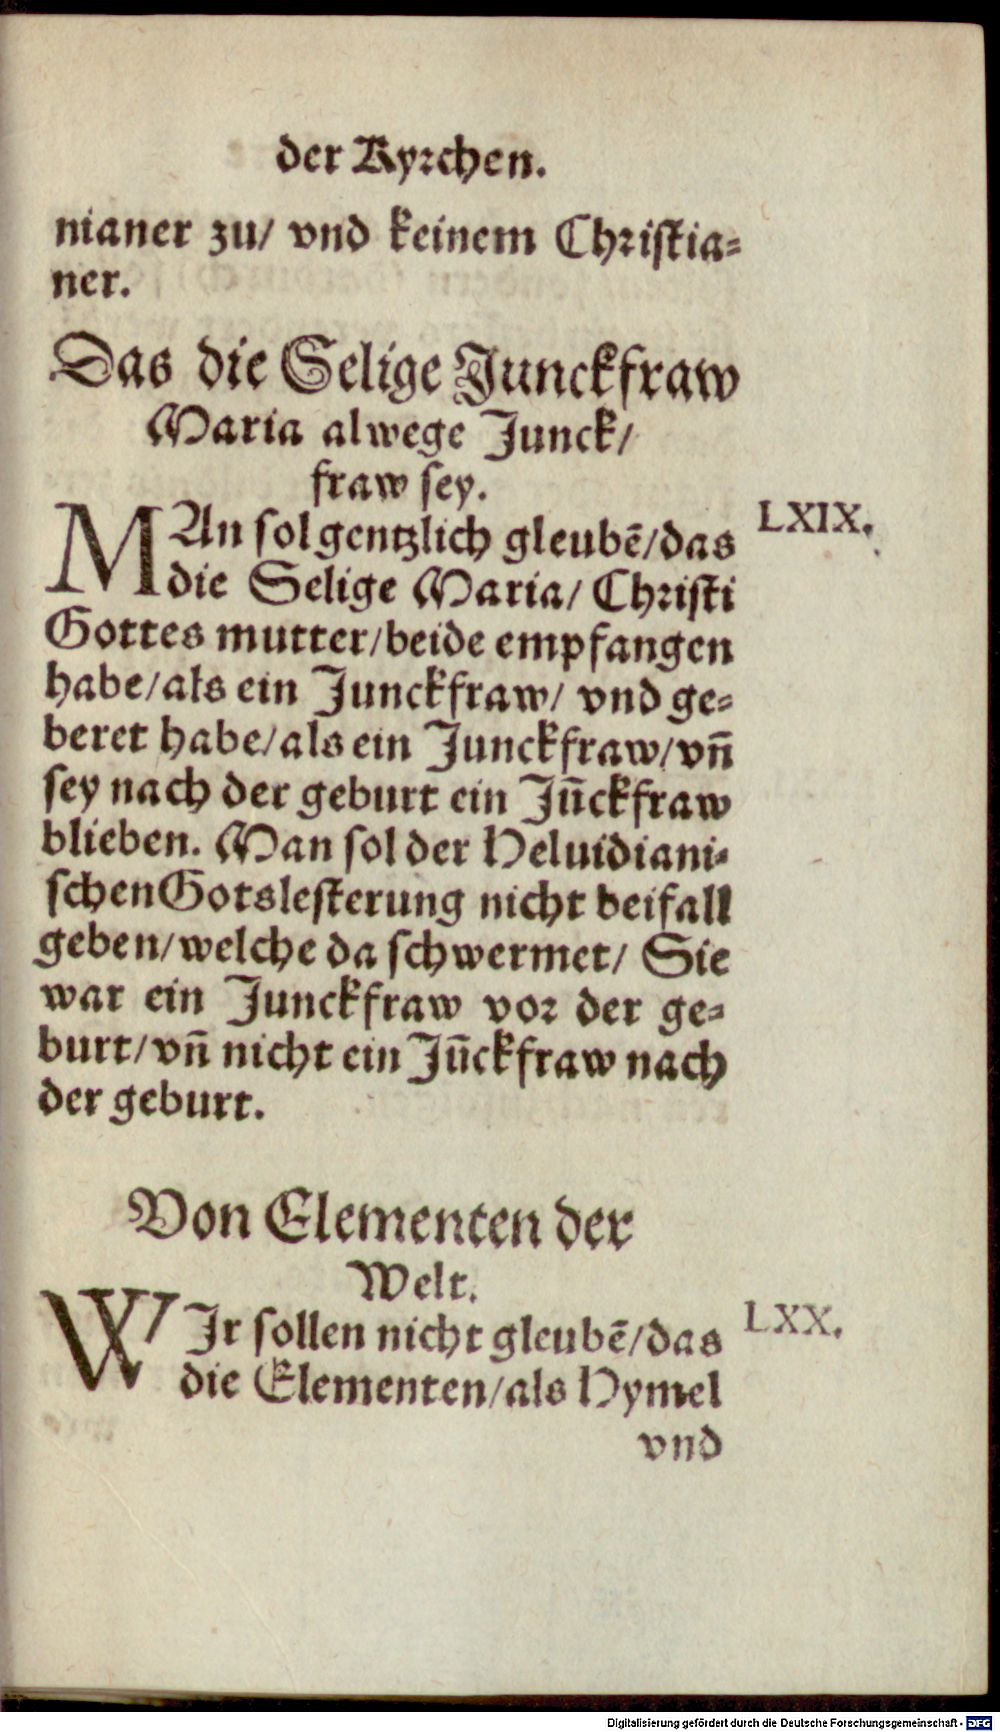 der Kyrchen.
nianer zu/ vnd keinem Christia=
ner.
Das die Selige Junckfraw
Maria alwege Junck/
fraw sey.
MAn sol gentzlich gleubē/das
LXIX.
die Selige Maria/ Christi
Gottes mutter/beide empfangen
habe/als ein Junckfraw/ vnd ge=
beret habe/als ein Junckfraw/vñ
sey nach der geburt ein Jūckfraw
blieben. Man sol der Heluidiani=
schen Gotslesterung nicht beifall
geben/welche da schwermet/ Sie
war ein Junckfraw vor der ge=
burt/vñ nicht ein Jūckfraw nach
der geburt.
Von Elementen der
Welt.
WJr sollen nicht gleubē/das
LXX.
die Elementen/als Hymel
vnd
Digitalisierung gefördert durch die Deutsche Forschungsgemeinschaft - DFG